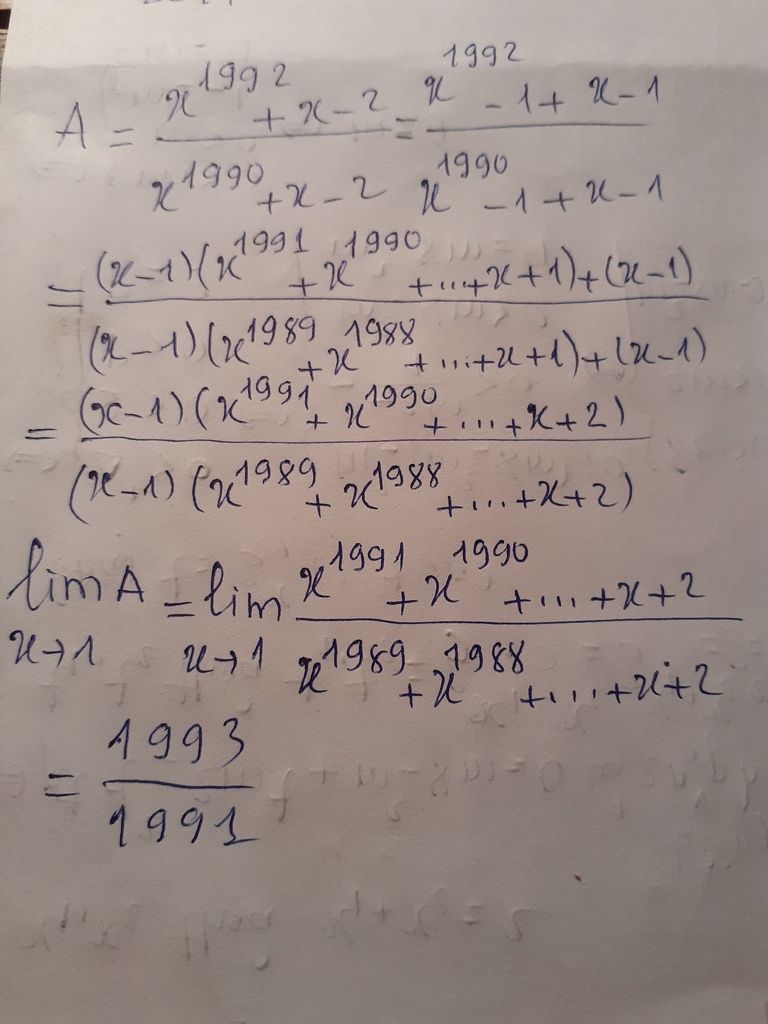 A = \frac{x^{1992} + x - 2}{x^{1990} + x - 2} = \frac{x^{1992} - 1 + x - 1}{x^{1990} - 1 + x - 1}
= \frac{(x-1)(x^{1991} + x^{1990} + ... + x + 1) + (x-1)}{(x-1)(x^{1989} + x^{1988} + ... + x + 1) + (x-1)}
= \frac{(x-1)(x^{1991} + x^{1990} + ... + x + 2)}{(x-1)(x^{1989} + x^{1988} + ... + x + 2)}
\lim_{x \to 1} A = \lim_{x \to 1} \frac{x^{1991} + x^{1990} + ... + x + 2}{x^{1989} + x^{1988} + ... + x + 2}
= \frac{1993}{1991}